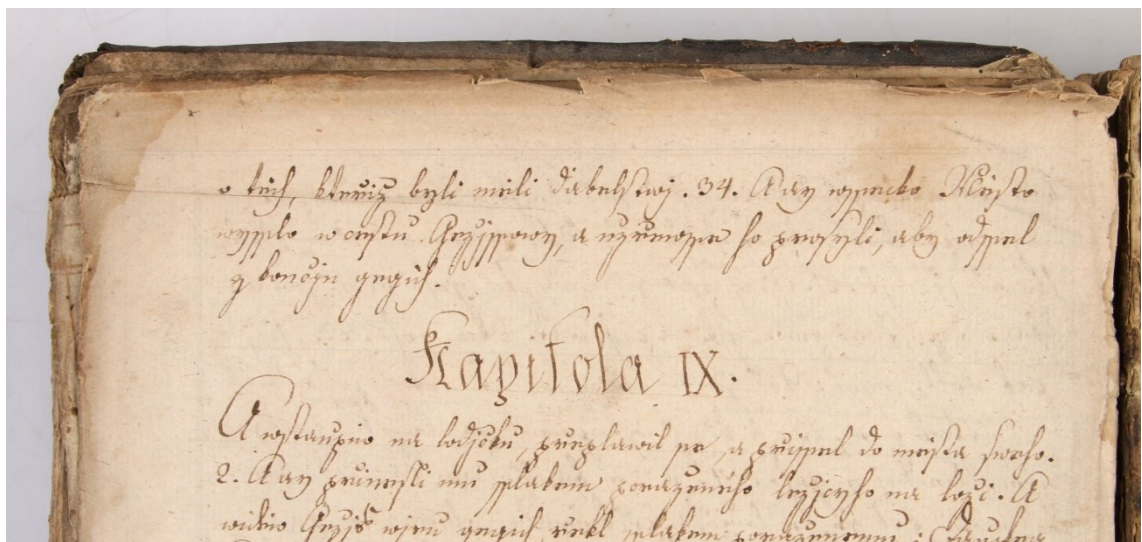 o tech, kteriz byli meli Dabelstwj. 34. A ay wssecko Mėsto
wysslo w cestu Gezjssowy, a uzrewsse ho prosyli, aby odssel
z koncjn gegich.
Kapitola IX.
A wstaupiw na lodjcku, preplawil se, a prissel do mesta sweho.
2. A ay prinesli mu sslakem porazeneho lezjcyho na lozi. A
widew Gezjs wjru gegich rekl sslakem porazenemu: